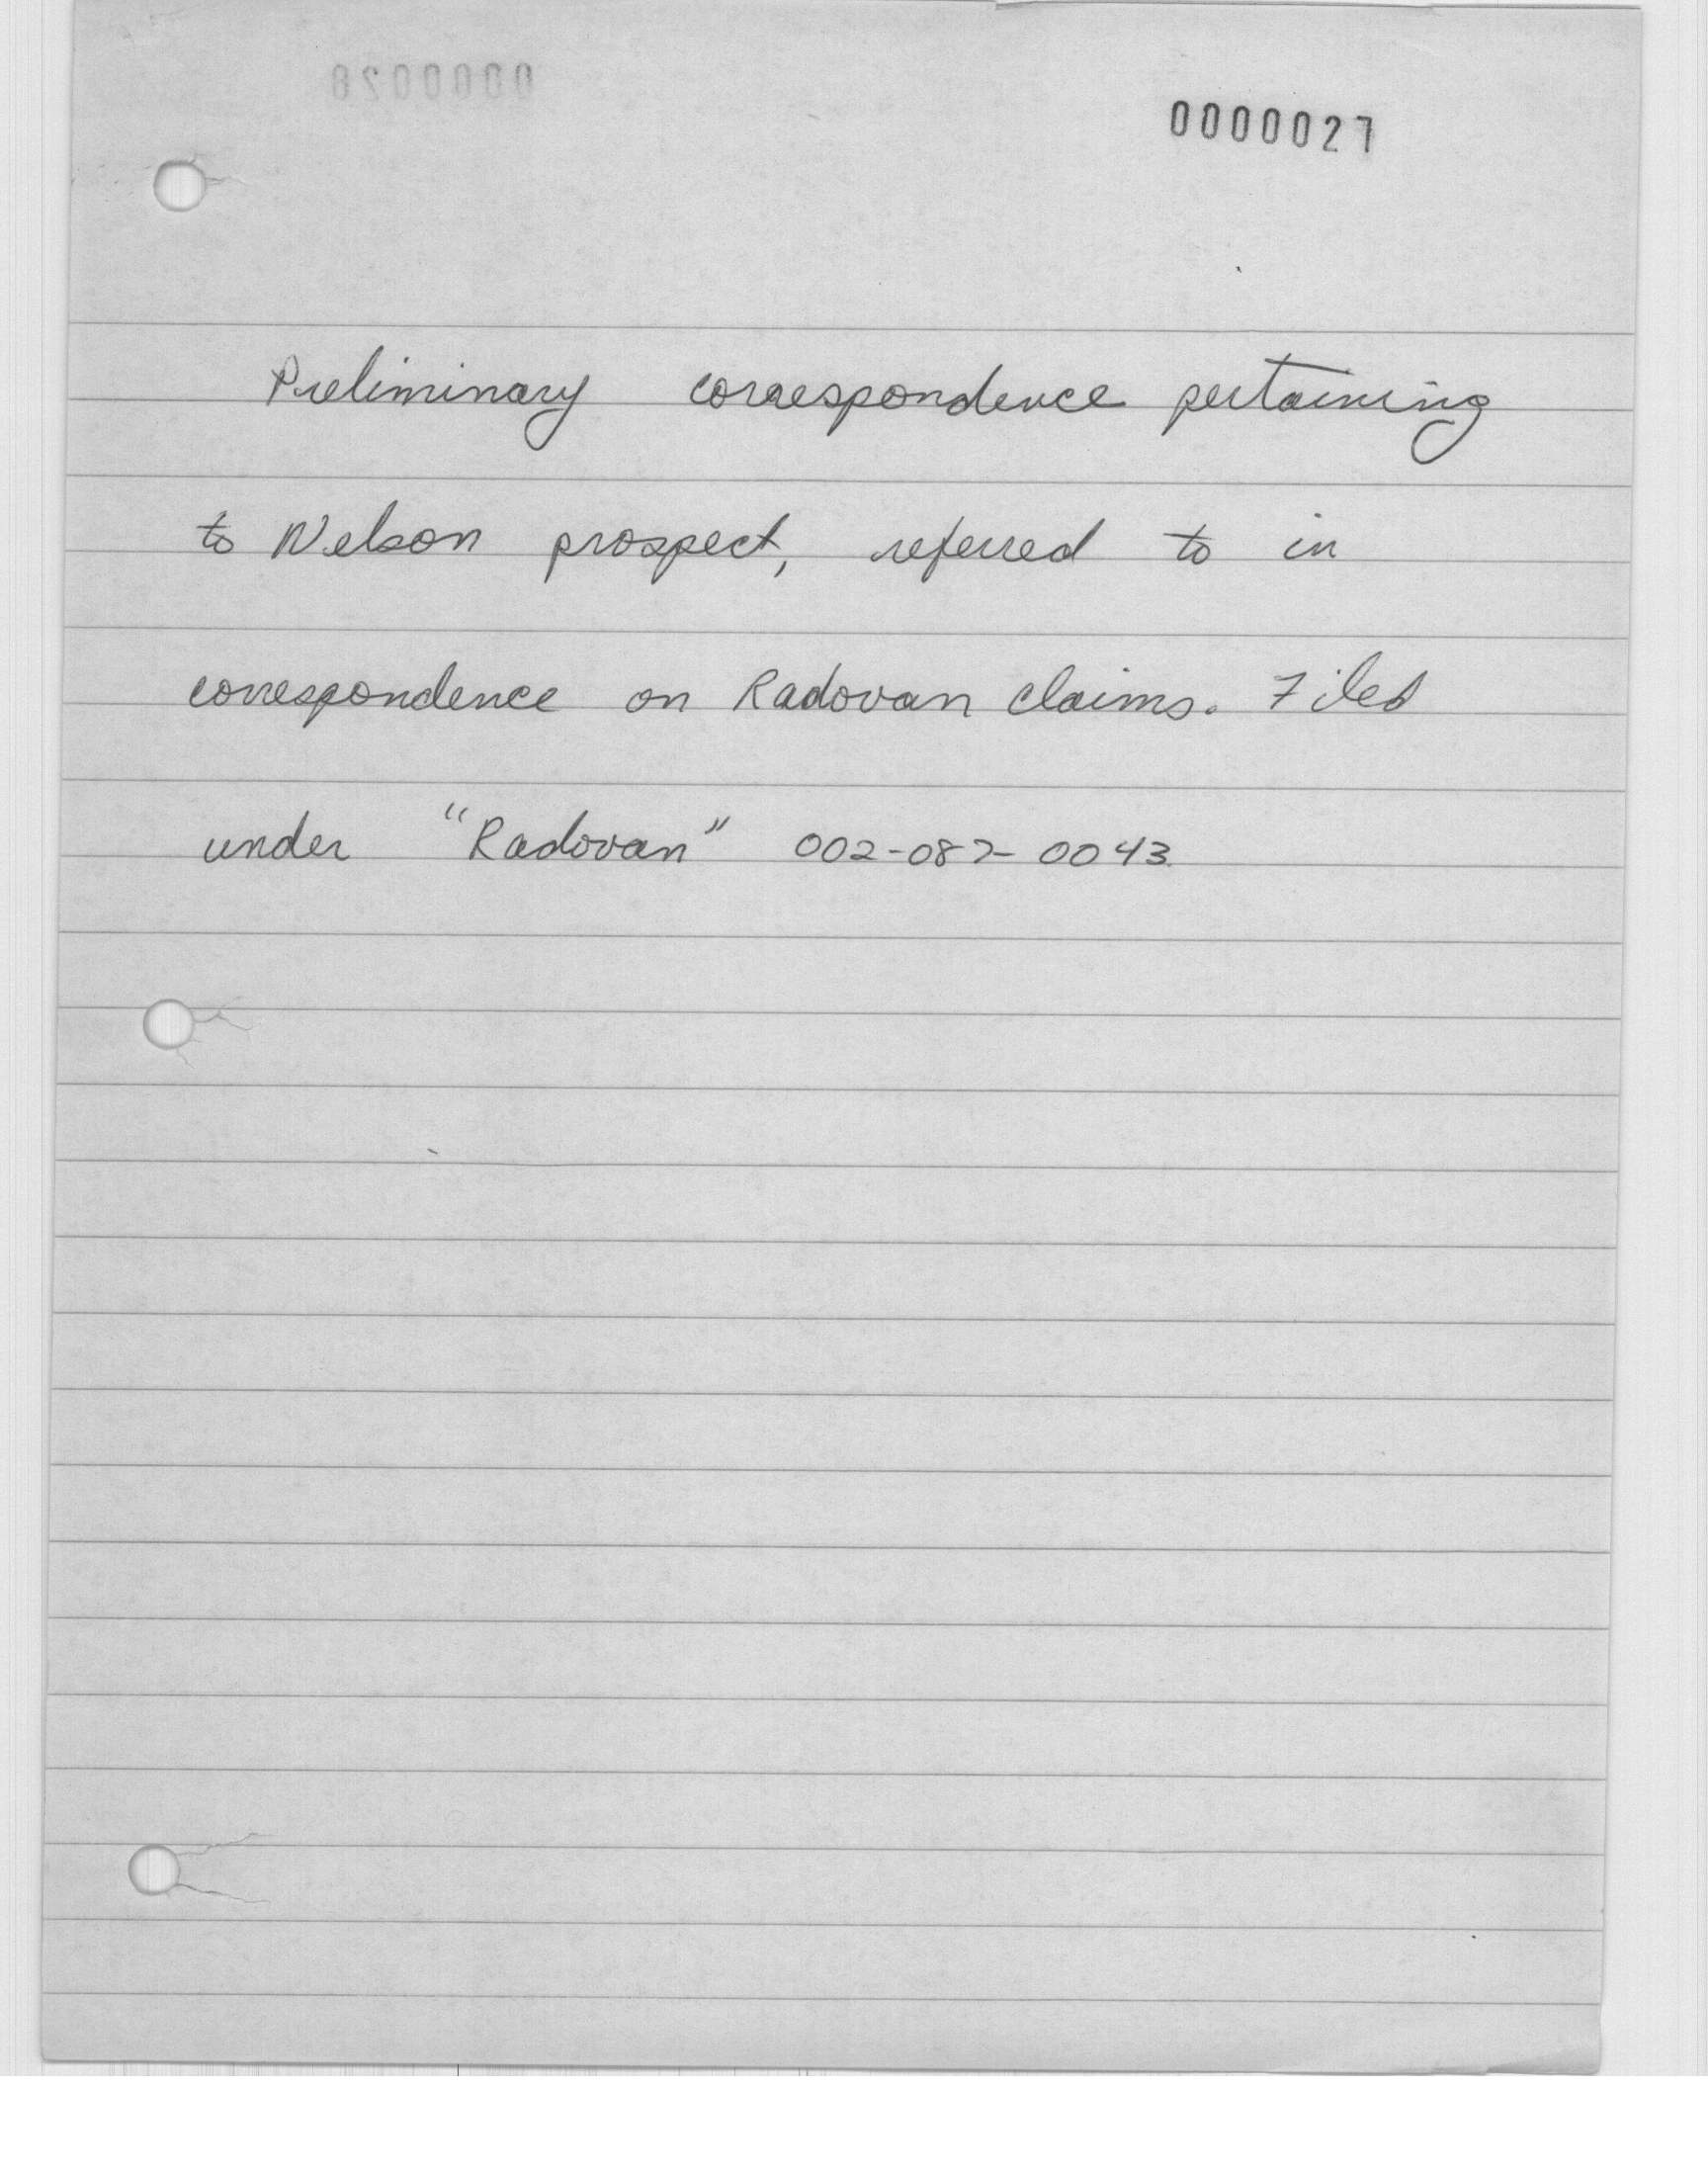 0000028
0000027
Preliminary correspondence pertaining
to Nelson prospect, referred to in
correspondence on Radovan claims. Filed
under "Radovan" 002-087-0043